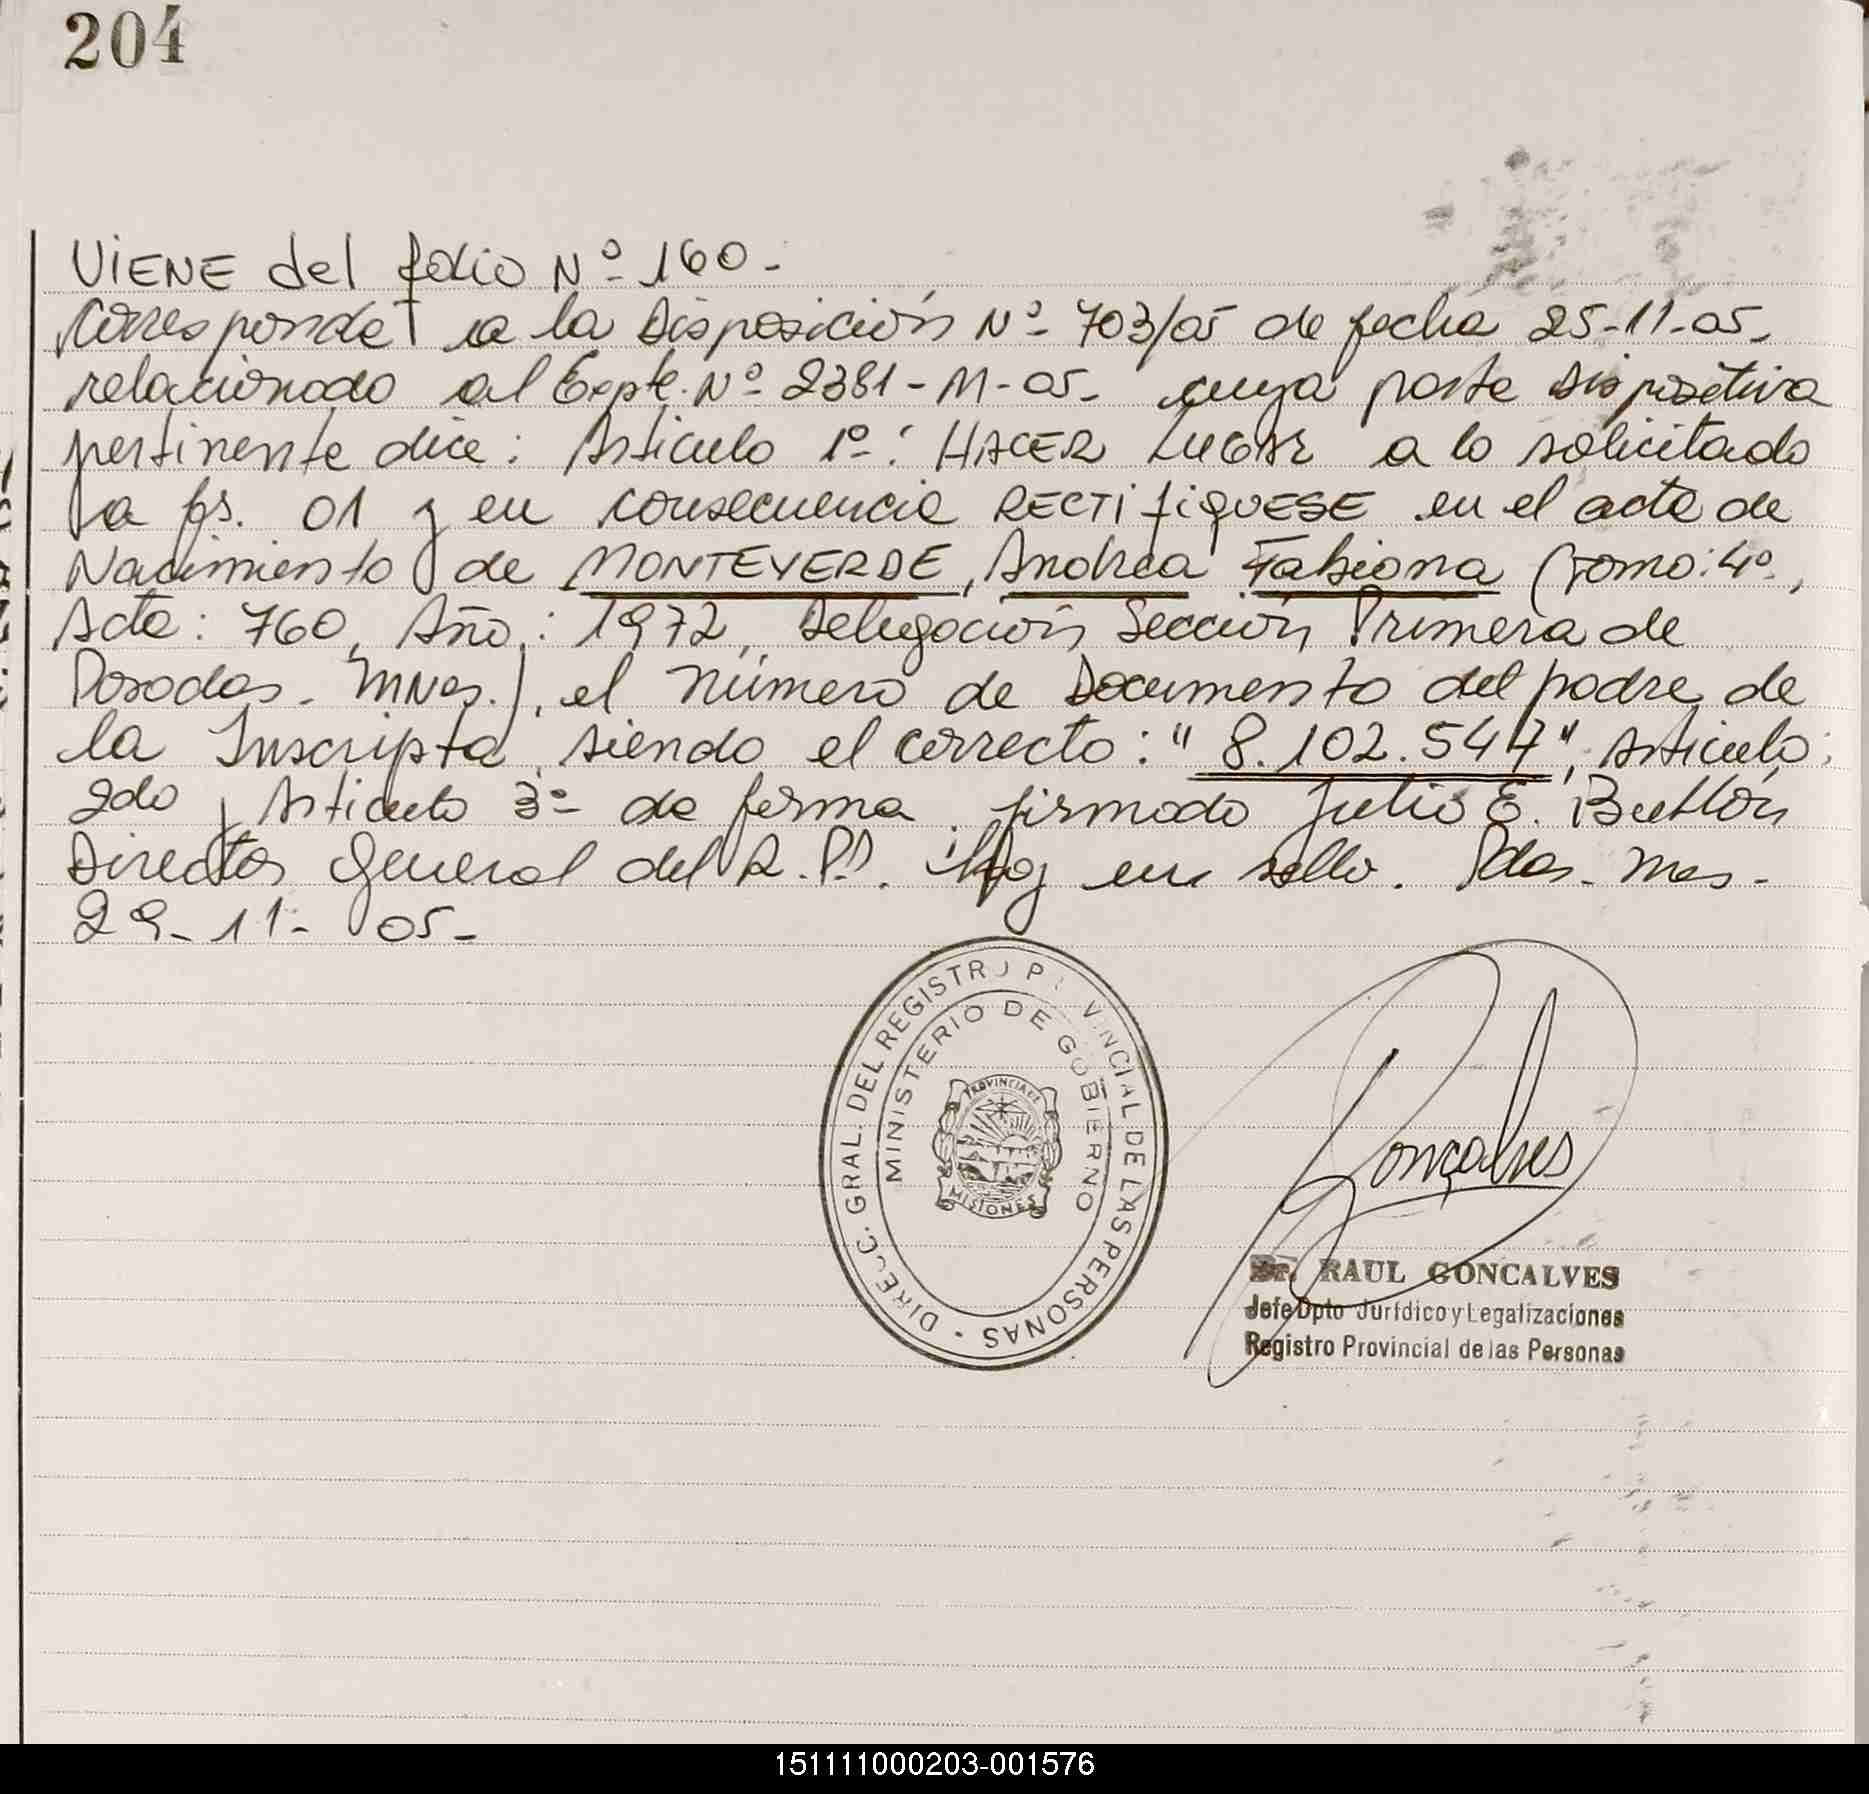 204
VIENE del folio Nº 160-
Corresponde a la Disposición Nº 703/05 de fecha 25-11-05,
relacionado al Expte. Nº 2381-M-05- cuya parte Dispositiva
pertinente dice: Articulo 1º: HACER LUGAR a lo solicitado
a fs. 01 y en consecuencia RECTIFIQUESE en el acta de
Nacimiento de MONTEVERDE, Andrea Fabiana (Tomo: 4º,
Acta: 760, Año: 1972, Delegación Sección Primera de
Posadas- Mnes.), el número de Documento del padre de
la Inscripta, siendo el correcto: "8.102.547", Articulo
2do y Articulo 3º de forma. firmado Julio E.
Director General del R.P.P. Hay un sello. Pdas- Mnes-
29-11-05-
DIRECC. GRAL. DEL REGISTRO PROVINCIAL DE LAS PERSONAS -
MINISTERIO DE GOBIERNO
MISIONES
Goncalves
Dr. RAUL GONCALVES
Jefe Dpto Jurídico y Legalizaciones
Registro Provincial de las Personas
151111000203-001576